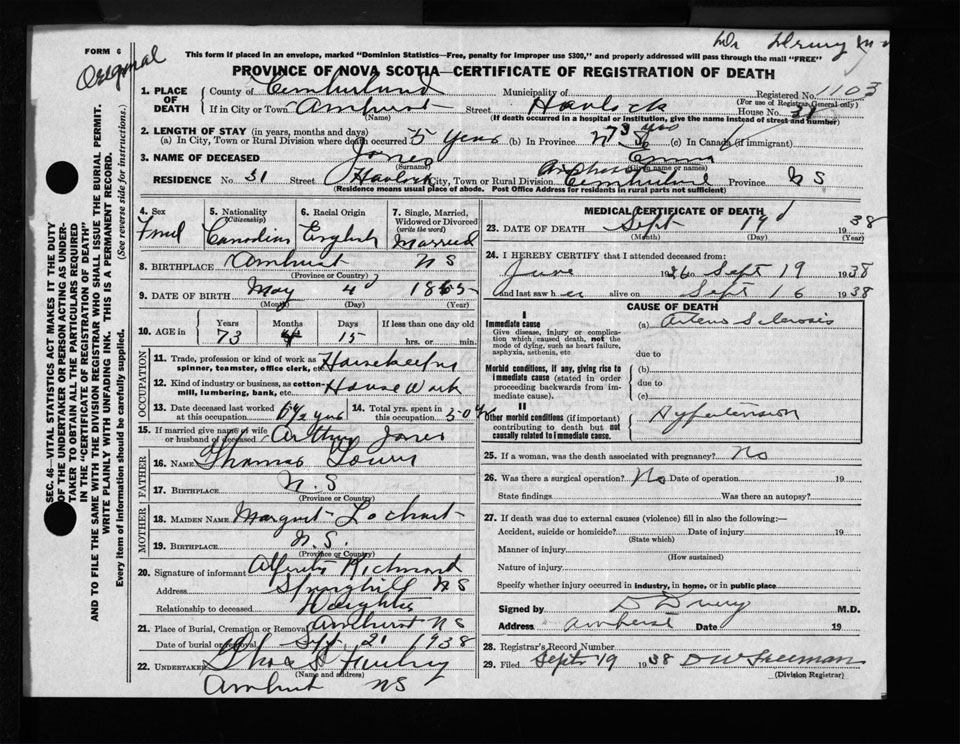 FORM 6
Original
Dr Drury
This form if placed in an envelope, marked "Dominion Statistics—Free, penalty for improper use $300," and properly addressed will pass through the mail "FREE"
PROVINCE OF NOVA SCOTIA—CERTIFICATE OF REGISTRATION OF DEATH
SEC. 46—VITAL STATISTICS ACT MAKES IT THE DUTY
OF THE UNDERTAKER OR PERSON ACTING AS UNDER-
TAKER TO OBTAIN ALL THE PARTICULARS REQUIRED
IN THE "CERTIFICATE OF REGISTRATION OF DEATH"
AND TO FILE THE SAME WITH THE DIVISION REGISTRAR WHO SHALL ISSUE THE BURIAL PERMIT.
WRITE PLAINLY WITH UNFADING INK. THIS IS A PERMANENT RECORD.
Every item of information should be carefully supplied. (See reverse side for instructions.)
1. PLACE OF DEATH County of Cumberland Municipality of Registered No. 1103
(For use of Registrar General only)
If in City or Town Amherst Street Havlock House No. 31
(Name) (If death occurred in a hospital or institution, give the name instead of street and number)
2. LENGTH OF STAY (in years, months and days)
(a) In City, Town or Rural Division where death occurred 5 years (b) In Province 73 yrs (c) In Canada (if immigrant)
3. NAME OF DECEASED Jones Emma
(Surname) (Given name or names)
RESIDENCE No. 31 Street Havlock City, Town or Rural Division Cumberland Province N S
(Residence means usual place of abode. Post Office Address for residents in rural parts not sufficient)
4. Sex Fmel
5. Nationality (Citizenship) Canadian
6. Racial Origin English
7. Single, Married, Widowed or Divorced (write the word) Married
8. BIRTHPLACE Amherst N S
(Province or Country)
9. DATE OF BIRTH May 4 1865
(Month) (Day) (Year)
10. AGE in Years 73 Months 4 Days 15 If less than one day old hrs. or min.
OCCUPATION
11. Trade, profession or kind of work as spinner, teamster, office clerk, etc. Housekeeping
12. Kind of industry or business, as cotton-mill, lumbering, bank, etc. House Work
13. Date deceased last worked at this occupation yrs 14. Total yrs. spent in this occupation 50 yrs
15. If married give name of wife or husband of deceased Arthur Jones
FATHER
16. NAME Thomas Lowry
17. BIRTHPLACE N. S
(Province or Country)
MOTHER
18. MAIDEN NAME Margret Lochart
19. BIRTHPLACE N. S.
(Province or Country)
20. Signature of informant Richmond
Address Springhill N S
Relationship to deceased Daughter
21. Place of Burial, Cremation or Removal Amherst N S
Date of burial or removal Sept 21 1938
22. UNDERTAKER
(Name and address)
Amherst N S
MEDICAL CERTIFICATE OF DEATH
23. DATE OF DEATH Sept 19 1938
(Month) (Day) (Year)
24. I HEREBY CERTIFY that I attended deceased from:
June 1936 to Sept 19 1938
and last saw h er alive on Sept 16 1938
CAUSE OF DEATH
I
Immediate cause (a) Arterio Sclerosis
Give disease, injury or complication which caused death, not the mode of dying, such as heart failure, asphyxia, asthenia, etc due to
Morbid conditions, if any, giving rise to immediate cause (stated in order proceeding backwards from immediate cause). (b)
due to
(c)
II
Other morbid conditions (if important) contributing to death but not causally related to immediate cause. Hypertension
25. If a woman, was the death associated with pregnancy? No
26. Was there a surgical operation? No Date of operation 19
State findings Was there an autopsy?
27. If death was due to external causes (violence) fill in also the following:—
Accident, suicide or homicide? Date of injury 19
(State which)
Manner of injury
(How sustained)
Nature of injury
Specify whether injury occurred in industry, in home, or in public place
Signed by D Drury M.D.
Address Amherst Date 19
28. Registrar's Record Number
29. Filed Sept 19 1938 D W Freeman
(Division Registrar)